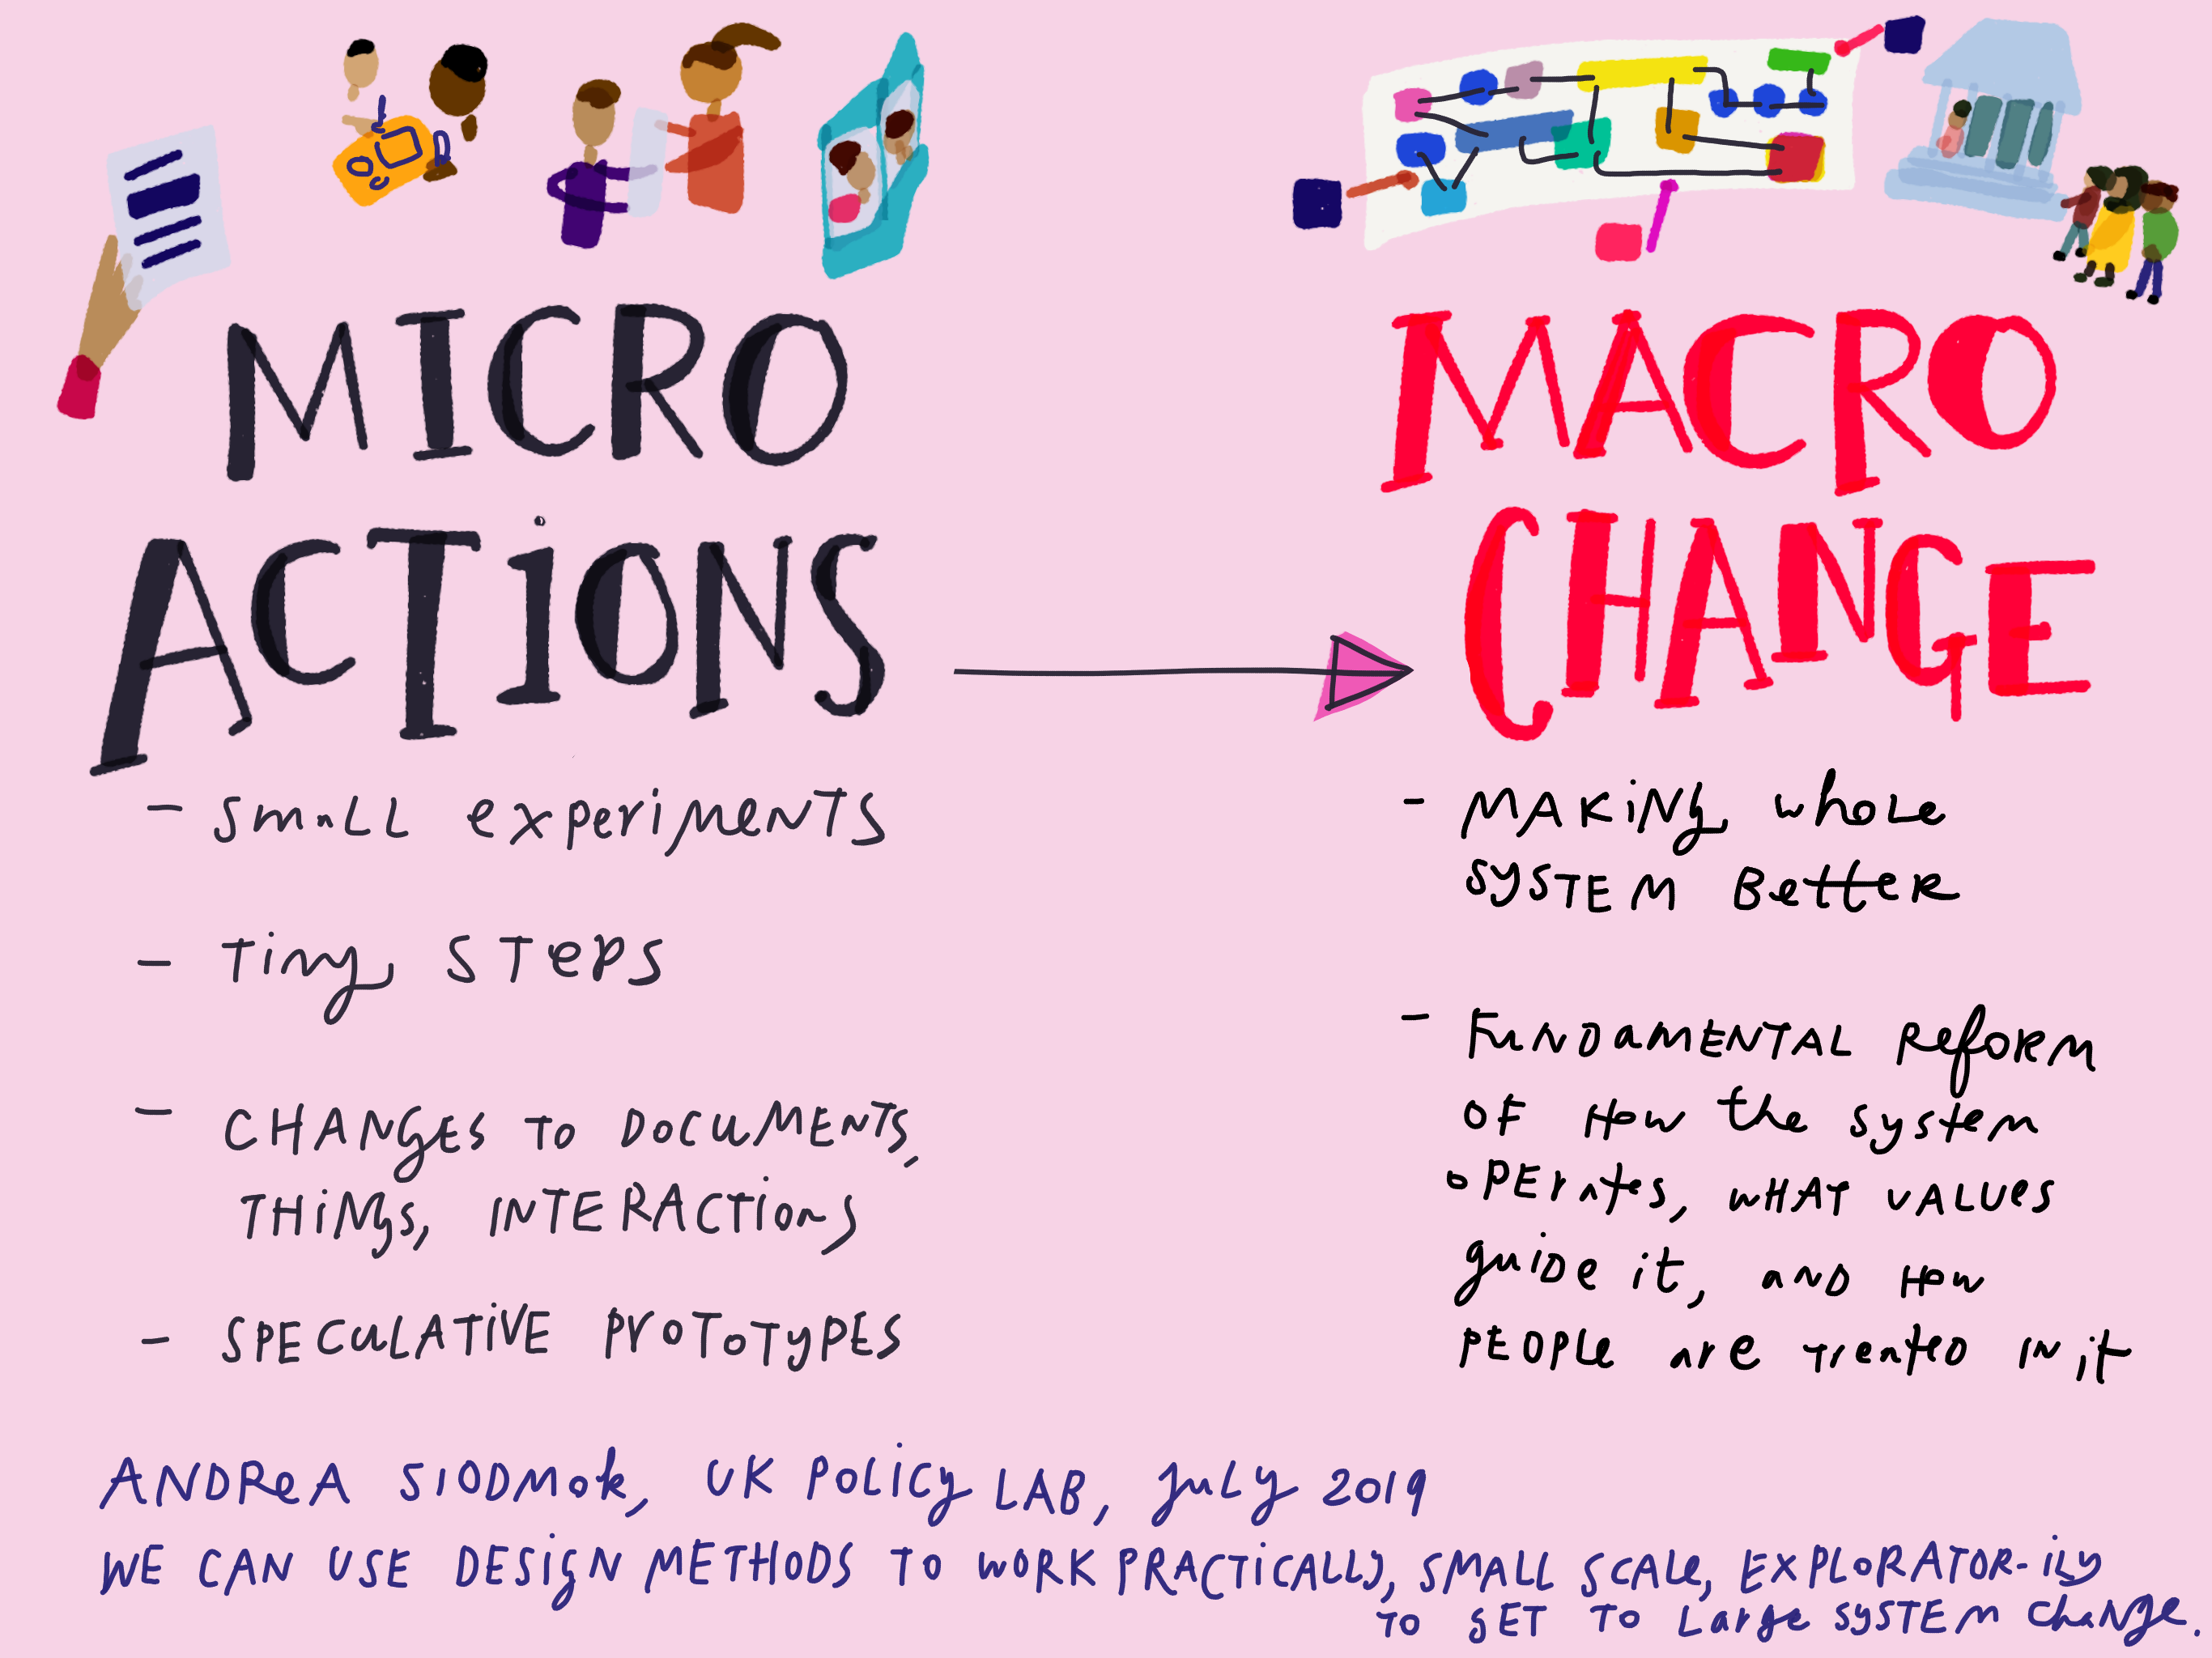 MICRO
ACTIONS
- small experiments
- Tiny STEPS
- CHANGES TO DOCUMENTS,
THINGS, INTERACTIONS
- SPECULATIVE PROTOTYPES
MACRO
CHANGE
- MAKING whole
SYSTEM Better
- FUNDAMENTAL Reform
OF How the system
OPERATES, WHAT VALUES
guide it, AND How
PEOPLE are treated IN it
ANDREA SIODMOK, UK POLICY LAB, JULY 2019
WE CAN USE DESIGN METHODS TO WORK PRACTICALLY, SMALL SCALE, EXPLORATOR-ILY
TO GET TO Large SYSTEM change.